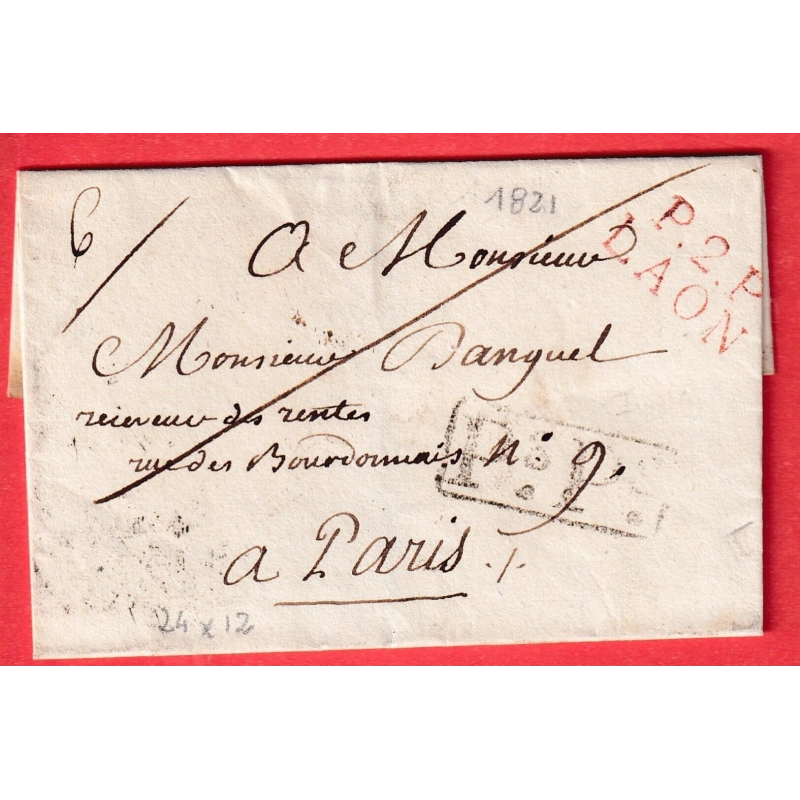 1821
6/
P.2.P
LAON
A Monsieur
Monsieur Danguel
receveur des rentes
rue des Bourdonnais N° 9.
P. P.
a Paris
24 x 12